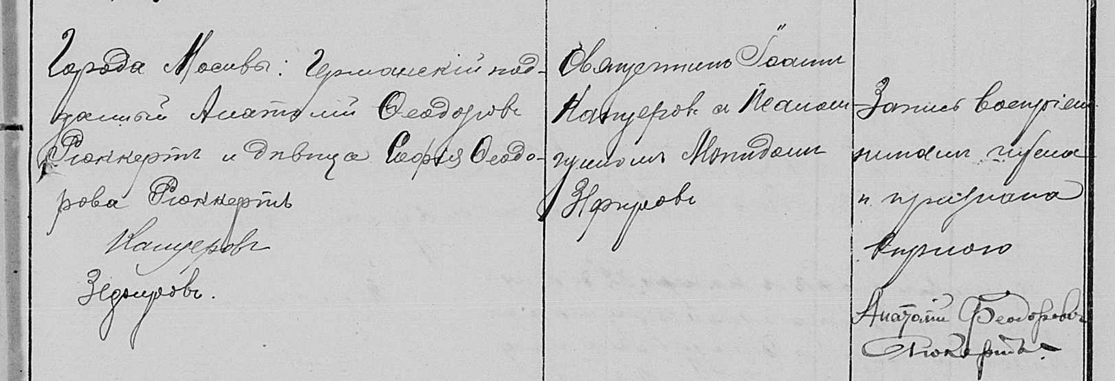 Города Москвы: Германскій под-
данный Анатолій Ѳеодоровъ
Рюккертъ и дѣвица Софія Ѳеодо-
рова Рюккертъ
Капцеровъ
Зефировъ.
Священникъ Іоаннъ
Капцеровъ и Псалом-
щикомъ
Зефировъ
Запись воспріем-
никами читана
и признана
вѣрною
Анатолій Ѳеодоровъ
Рюкертъ.